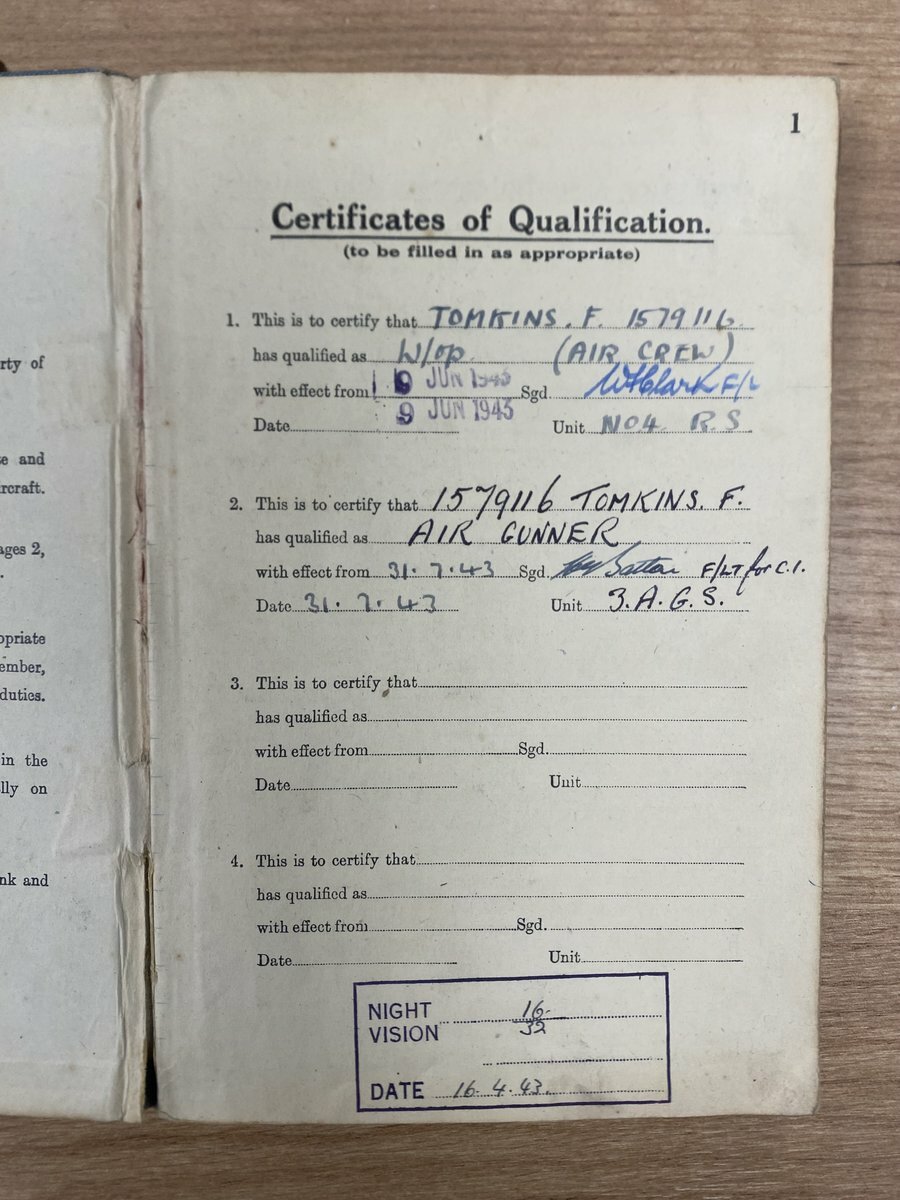 rty of
e and
rcraft.
ages 2,
.
opriate
ember,
duties.
in the
lly on
nk and
1
Certificates of Qualification.
(to be filled in as appropriate)
1. This is to certify that TOMKINS. F. 1579116
has qualified as W/op (AIR CREW)
with effect from 9 JUN 1943 Sgd W H Clark F/L
Date 9 JUN 1943 Unit NO4 R.S
2. This is to certify that 1579116 TOMKINS. F.
has qualified as AIR GUNNER
with effect from 31.7.43 Sgd F/LT for C.I.
Date 31.7.43 Unit 3.A.G.S.
3. This is to certify that
has qualified as
with effect from Sgd.
Date Unit
4. This is to certify that
has qualified as
with effect from Sgd.
Date Unit
NIGHT VISION 16/32
DATE 16.4.43.